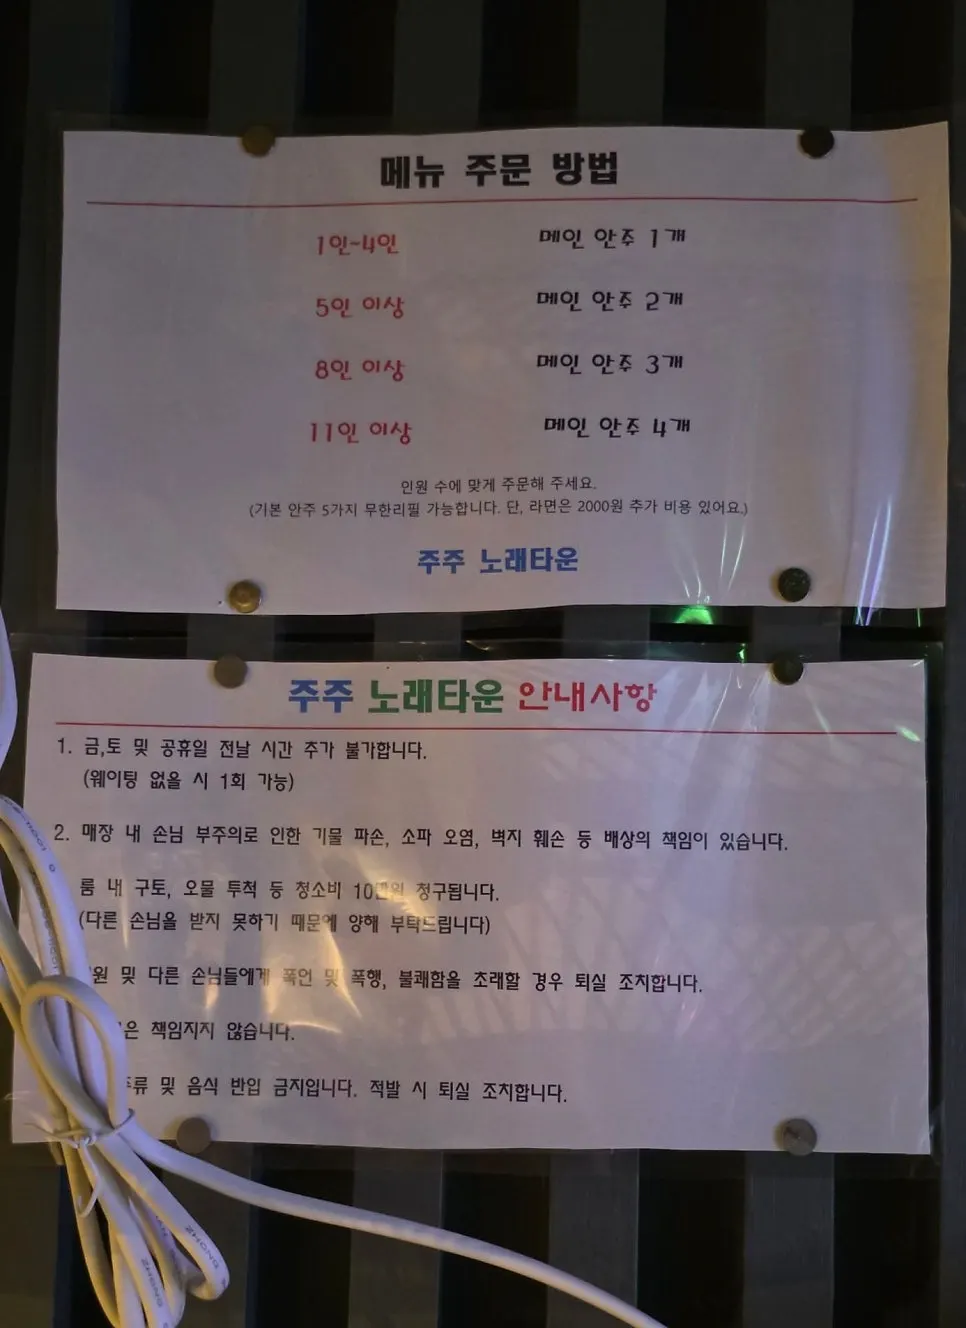 메뉴 주문 방법
1인-4인 메인 안주 1개
5인 이상 메인 안주 2개
8인 이상 메인 안주 3개
11인 이상 메인 안주 4개
인원 수에 맞게 주문해 주세요.
(기본 안주 5가지 무한리필 가능합니다. 단, 라면은 2000원 추가 비용 있어요.)
주주 노래타운
주주 노래타운 안내사항
1. 금,토 및 공휴일 전날 시간 추가 불가합니다.
(웨이팅 없을 시 1회 가능)
2. 매장 내 손님 부주의로 인한 기물 파손, 소파 오염, 벽지 훼손 등 배상의 책임이 있습니다.
룸 내 구토, 오물 투척 등 청소비 10만원 청구됩니다.
(다른 손님을 받지 못하기 때문에 양해 부탁드립니다)
및 다른 손님들에게 폭언 및 폭행, 불쾌함을 초래할 경우 퇴실 조치합니다.
책임지지 않습니다.
및 음식 반입 금지입니다. 적발 시 퇴실 조치합니다.
ZHONG
ZHONG